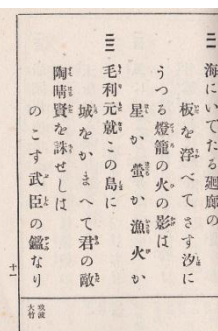 二一 海にいでたる廻廊の
板を浮べてさす汐に
うつる燈籠の火の影は
星か螢か漁火か
二二 毛利元就この島に
城をかまへて君の敵
陶晴賢を誅せしは
のこす武臣の鑑なり
十一
玖波
大竹